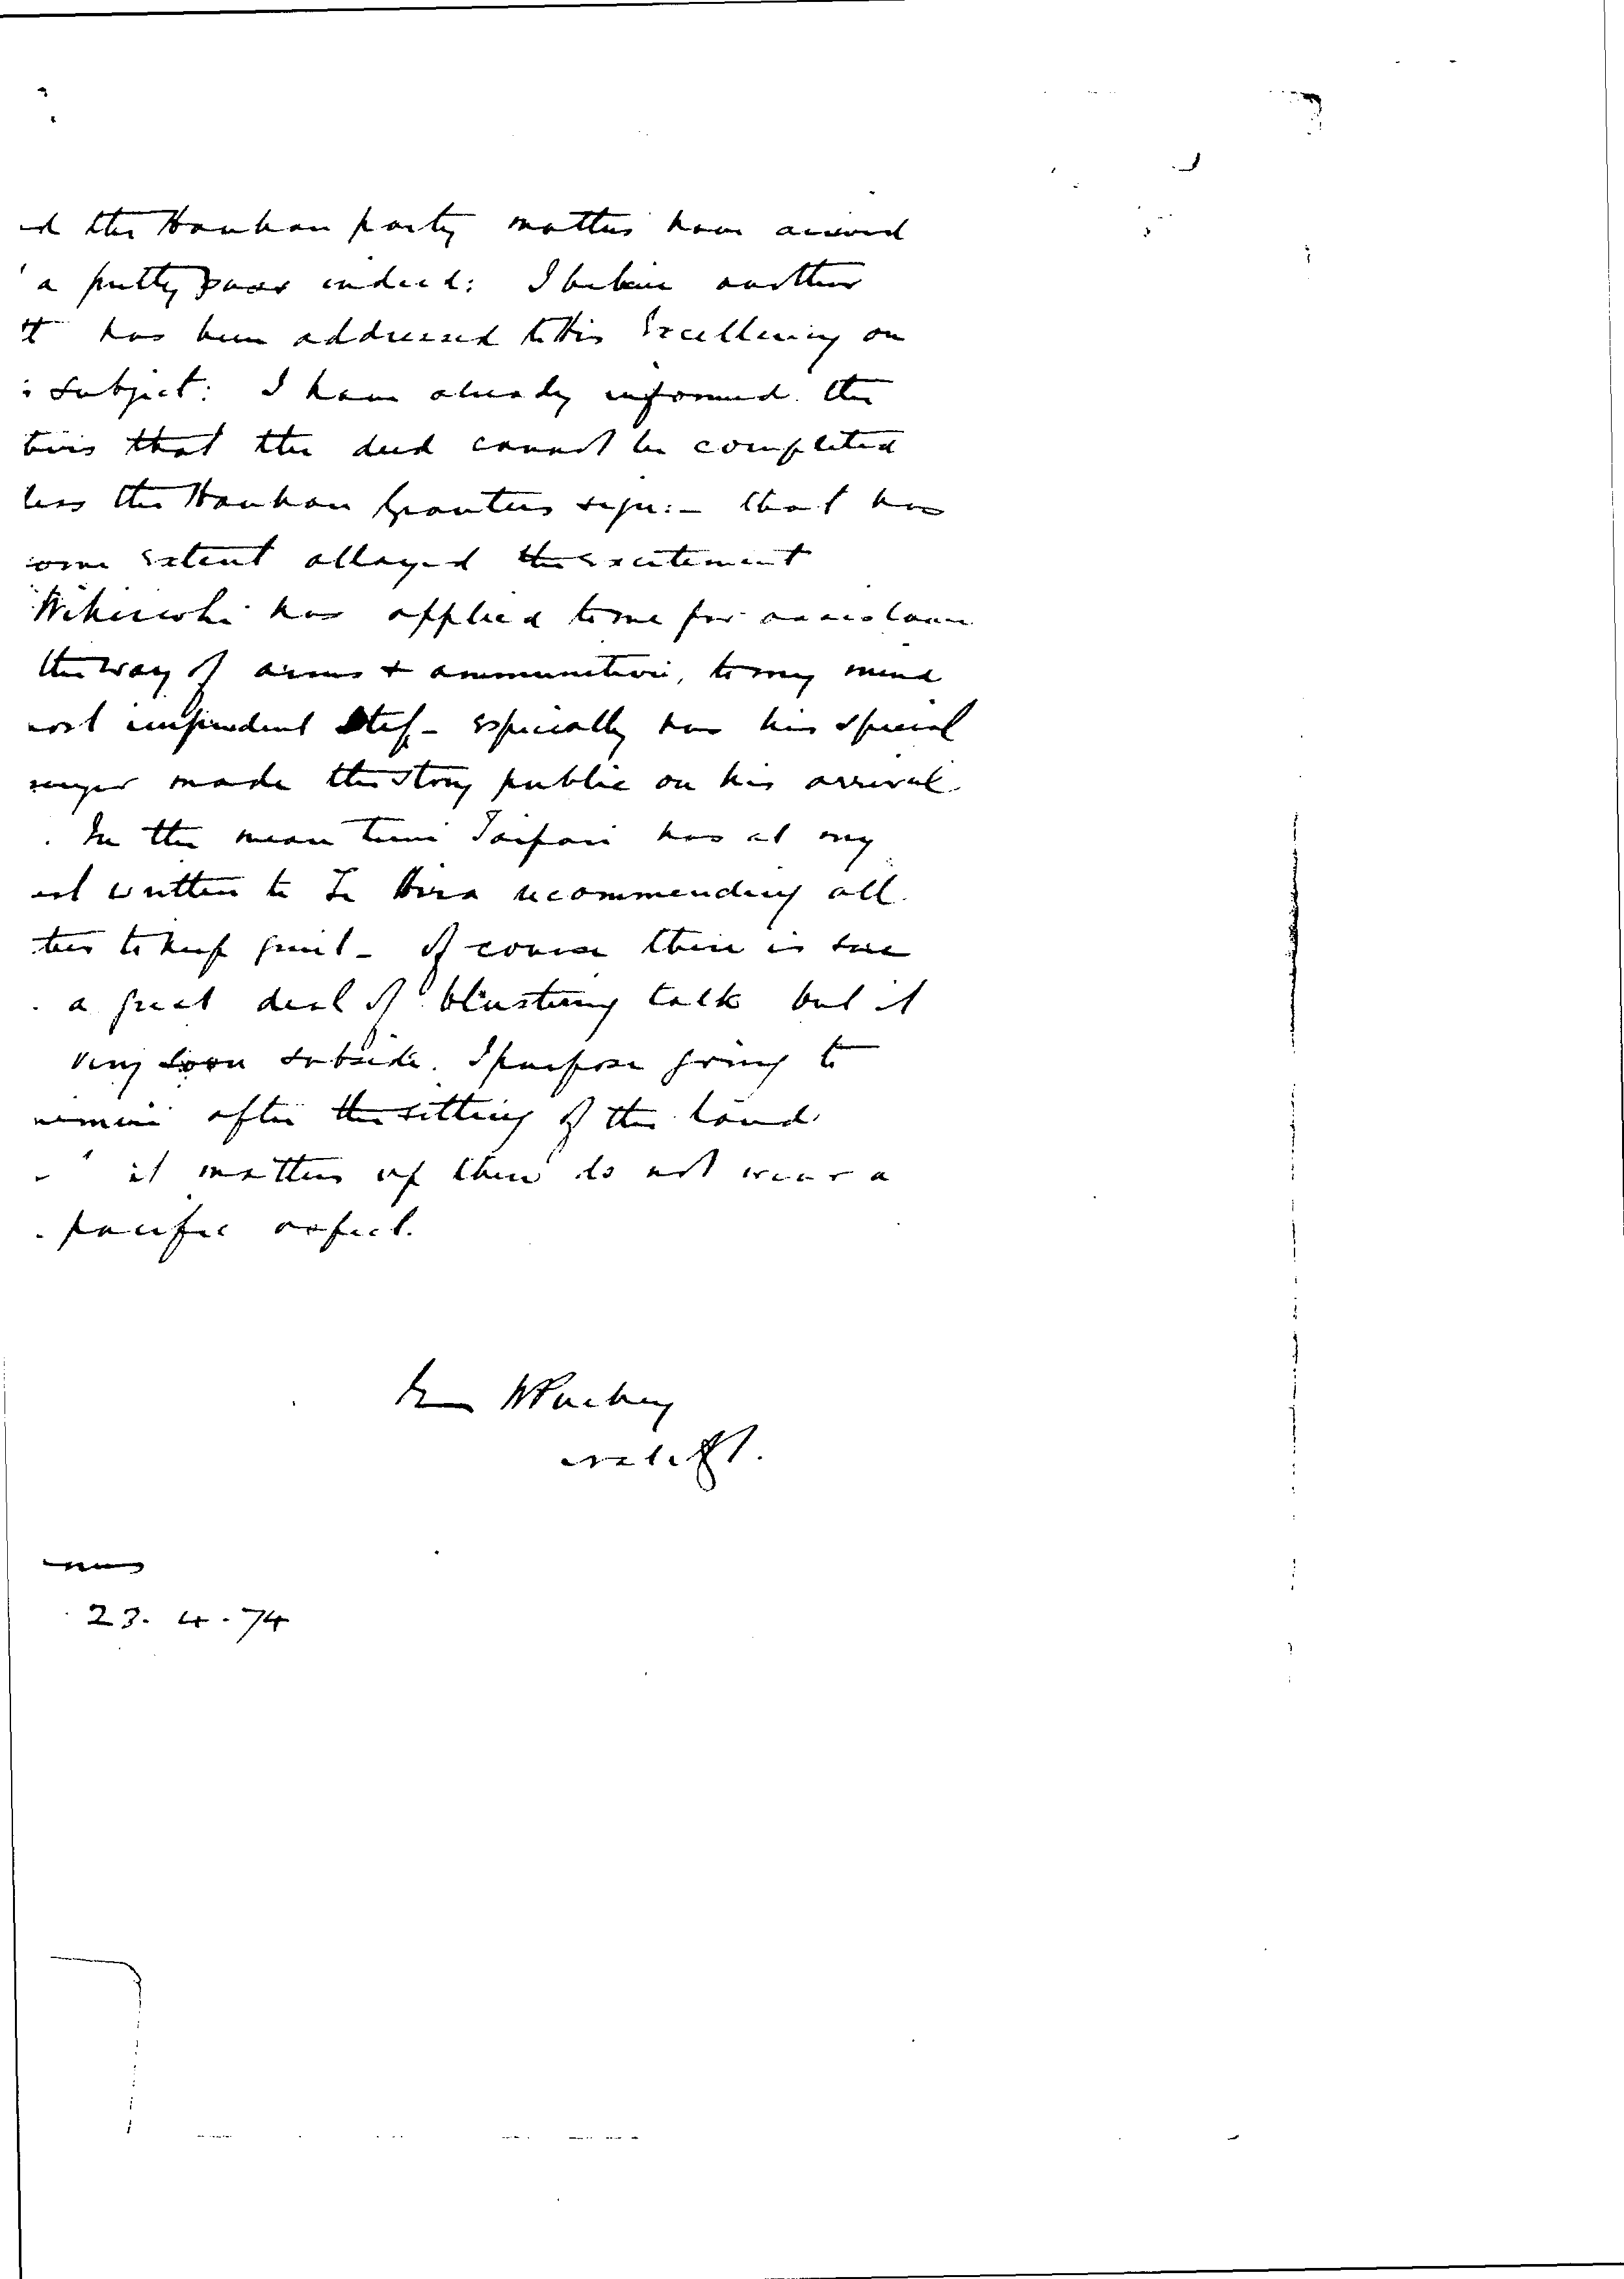 the Hauhau party matters have arrived
a pretty pass indeed: I believe another
has been addressed to His Excellency on
subject: I have already informed the
that the deed cannot be completed
less the Hauhau Grantees sign:- that has
ome extent allayed the excitement
has applied to me for assistance
the way of arms & ammunition, to my mind
ost impudent step - especially has his special
enger made the story public on his arrival.
In the mean time Taipari has at my
est written to Te Hira recommending all
ties to keep quiet - Of course there is
a great deal of blustering talk but it
very soon subside. I purpose going to
after the sitting of the Land
if matters up there do not wear a
pacific aspect.
Puckey
23. 4. 74